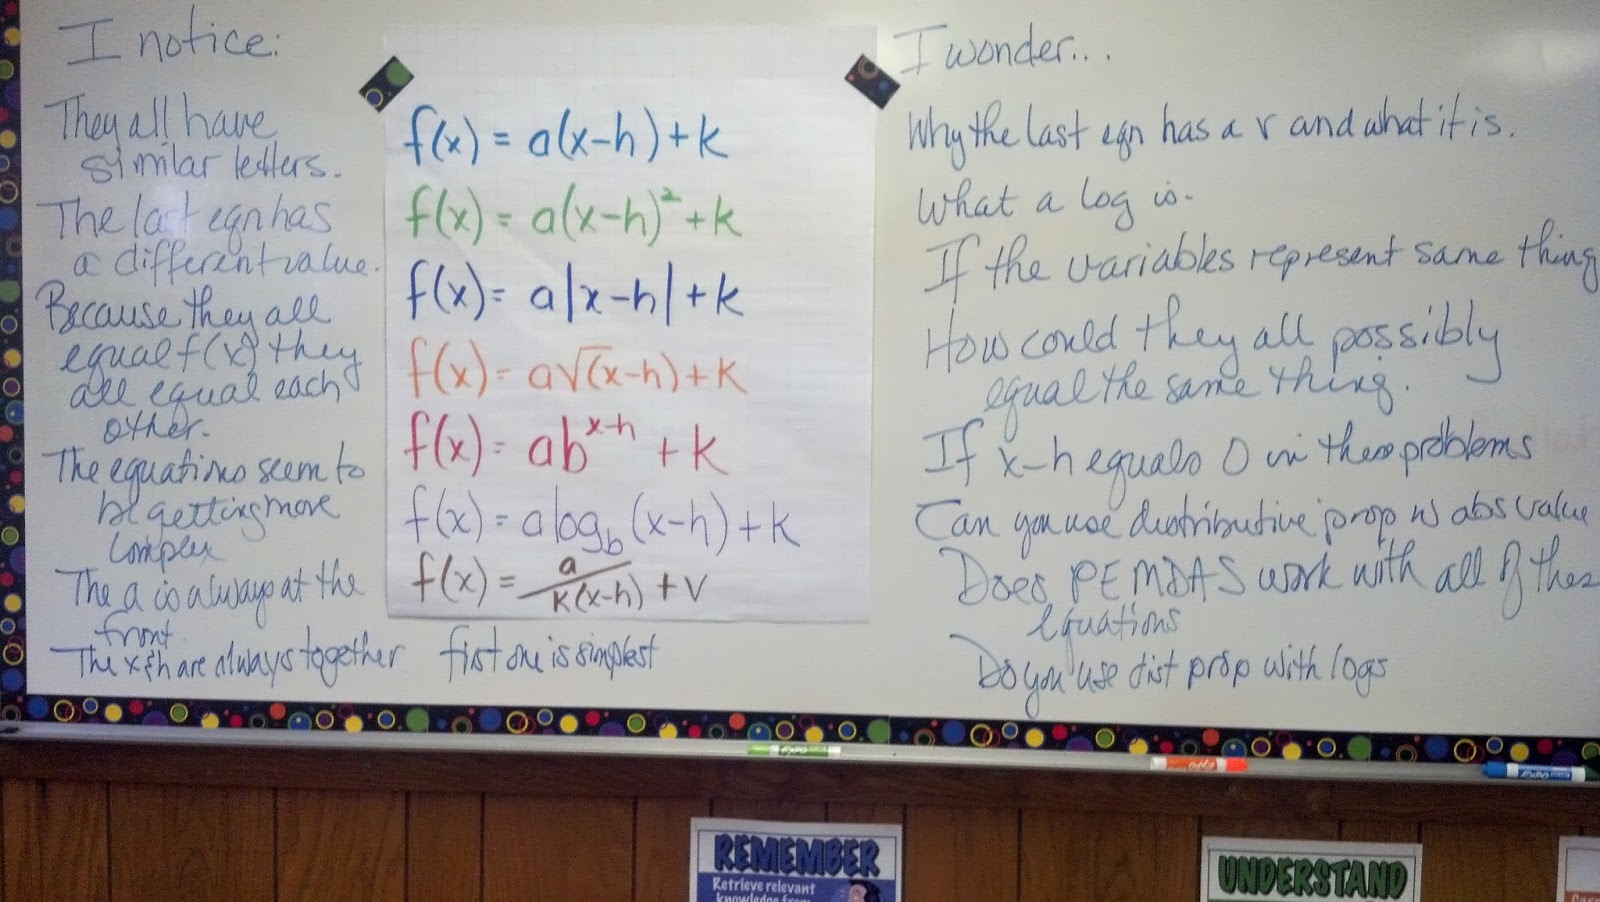 I notice:
They all have
similar letters.
The last eqn has
a different value.
Because they all
equal f(x) they
all equal each
other.
The equations seem to
be getting more
complex
The a is always at the
front.
The x & h are always together
first one is simplest
f(x) = a(x-h)+k
f(x) = a(x-h)²+k
f(x) = a|x-h|+k
f(x) = a√(x-h)+k
f(x) = ab^(x-h) + k
f(x) = a log_b (x-h)+k
f(x) = a/k(x-h) + v
I wonder...
Why the last eqn has a v and what it is.
What a log is.
If the variables represent same thing
How could they all possibly
equal the same thing.
If x-h equals 0 in these problems
Can you use distributive prop w abs value
Does PEMDAS work with all of these
equations
Do you use dist prop with logs
EXPO
EXPO
REMEMBER
Retrieve relevant
knowledge from
UNDERSTAND